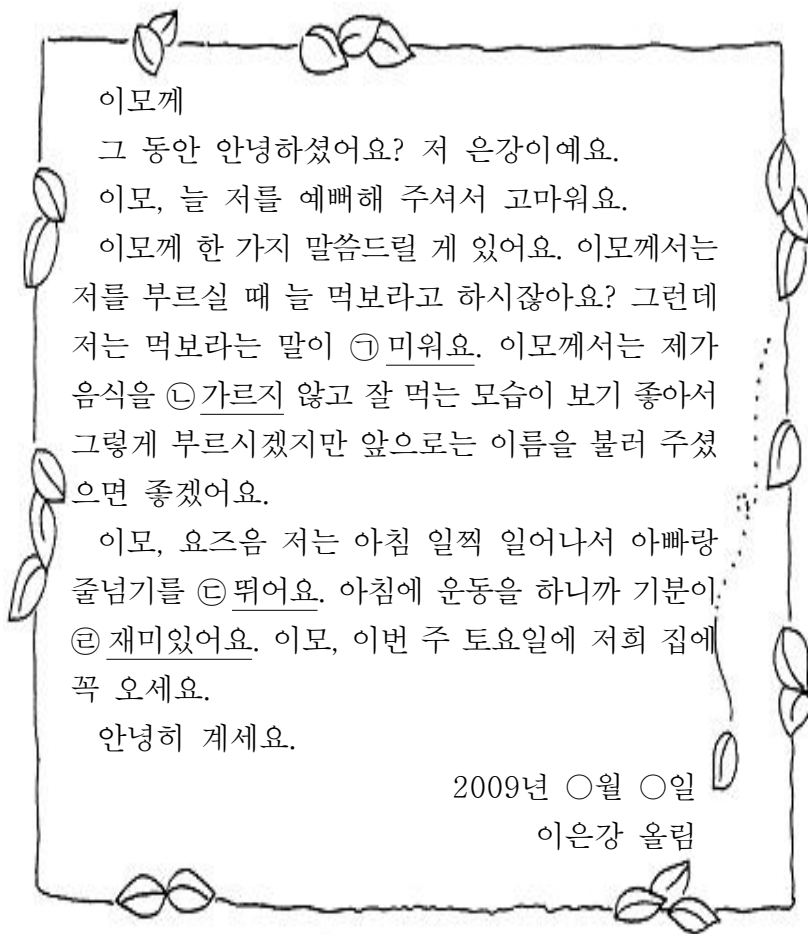 이모께
그 동안 안녕하셨어요? 저 은강이예요.
이모, 늘 저를 예뻐해 주셔서 고마워요.
이모께 한 가지 말씀드릴 게 있어요. 이모께서는
저를 부르실 때 늘 먹보라고 하시잖아요? 그런데
저는 먹보라는 말이 ㉠ 미워요. 이모께서는 제가
음식을 ㉡ 가르지 않고 잘 먹는 모습이 보기 좋아서
그렇게 부르시겠지만 앞으로는 이름을 불러 주셨
으면 좋겠어요.
이모, 요즈음 저는 아침 일찍 일어나서 아빠랑
줄넘기를 ㉢ 뛰어요. 아침에 운동을 하니까 기분이
㉣ 재미있어요. 이모, 이번 주 토요일에 저희 집에
꼭 오세요.
안녕히 계세요.
2009년 ○월 ○일
이은강 올림